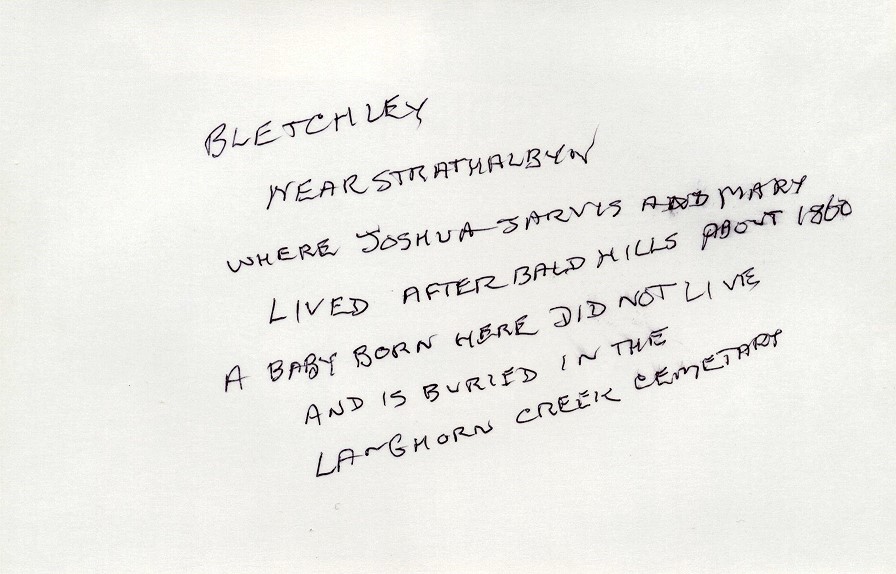 BLETCHLEY
NEAR STRATHALBYN
WHERE JOSHUA JARVIS AND MARY
LIVED AFTER BALD HILLS ABOUT 1860
A BABY BORN HERE DID NOT LIVE
AND IS BURIED IN THE
LANGHORN CREEK CEMETARY